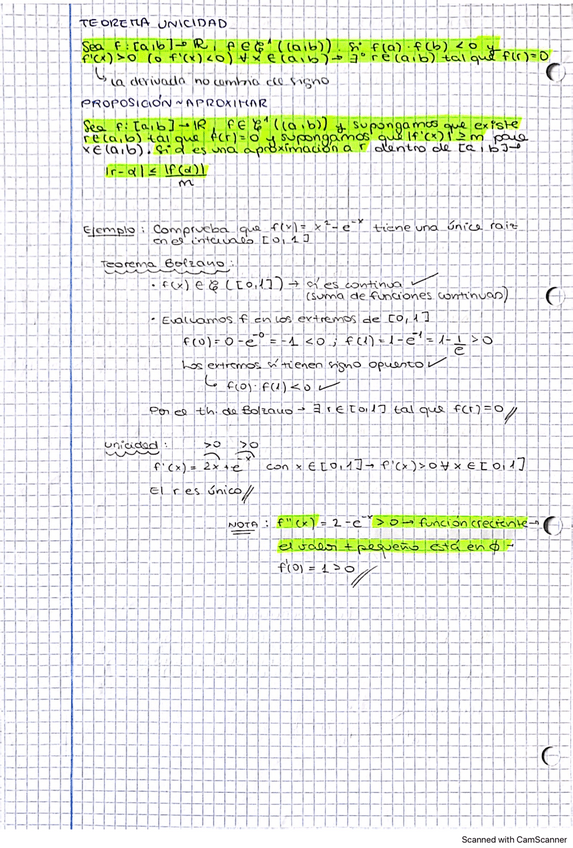 TEOREMA UNICIDAD
Sea f: [a,b] → ℝ, f ∈ 𝒞¹((a,b)). Si f(a)·f(b) < 0 y
f'(x) > 0 (o f'(x) < 0) ∀ x ∈ (a,b) → ∃° r ∈ (a,b) tal que f(r) = 0
↳ la derivada no cambia de signo
PROPOSICIÓN ~ APROXIMAR
Sea f: [a,b] → ℝ, f ∈ 𝒞¹((a,b)) y supongamos que existe
r ∈ (a,b) tal que f(r) = 0 y supongamos que |f'(x)| ≥ m para
x ∈ (a,b). Si α es una aproximación a r dentro de [a,b] →
|r-α| ≤ |f(α)|/m
Ejemplo: Comprueba que f(x) = x² - e^-x tiene una única raiz
en el intervalo [0,1]
Teorema Bolzano:
· f(x) ∈ 𝒞([0,1]) → sí es continua ✓
(suma de funciones continuas)
· Evaluamos f en los extremos de [0,1]
f(0) = 0 - e^-0 = -1 < 0 ; f(1) = 1 - e^-1 = 1 - 1/e > 0
Los extremos sí tienen signo opuesto ✓
↳ f(0)·f(1) < 0 ✓
Por el th. de Bolzano → ∃ r ∈ [0,1] tal que f(r) = 0 //
Unicidad: >0 >0
f'(x) = 2x + e^-x con x ∈ [0,1] → f'(x) > 0 ∀ x ∈ [0,1]
El r es único //
NOTA: f''(x) = 2 - e^-x > 0 → función creciente →
el valor + pequeño está en ϕ →
f'(0) = 1 > 0 //
Scanned with CamScanner